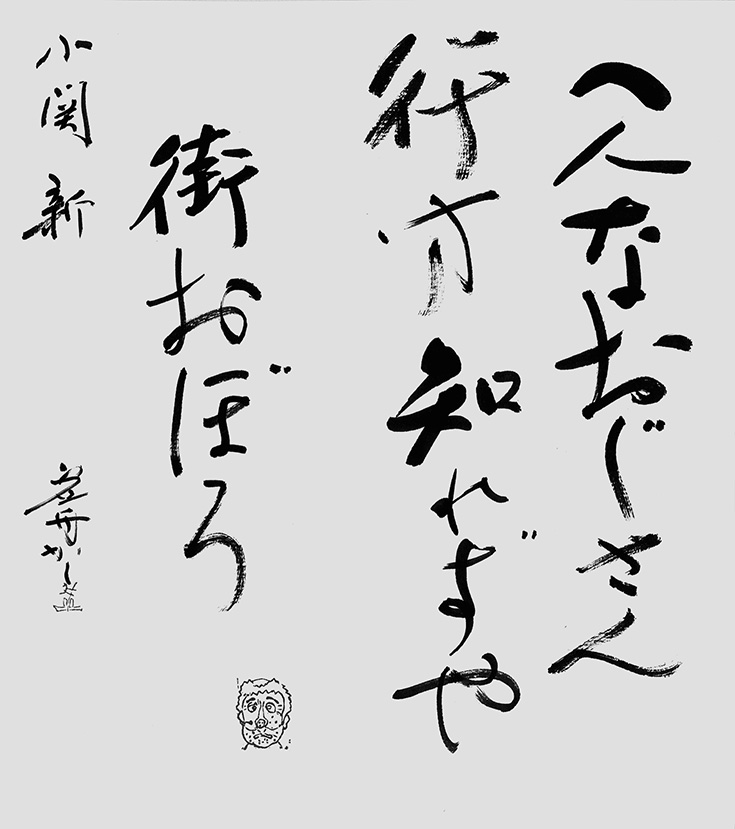 へんなおじさん
行方知れずや
街おぼろ
小関新